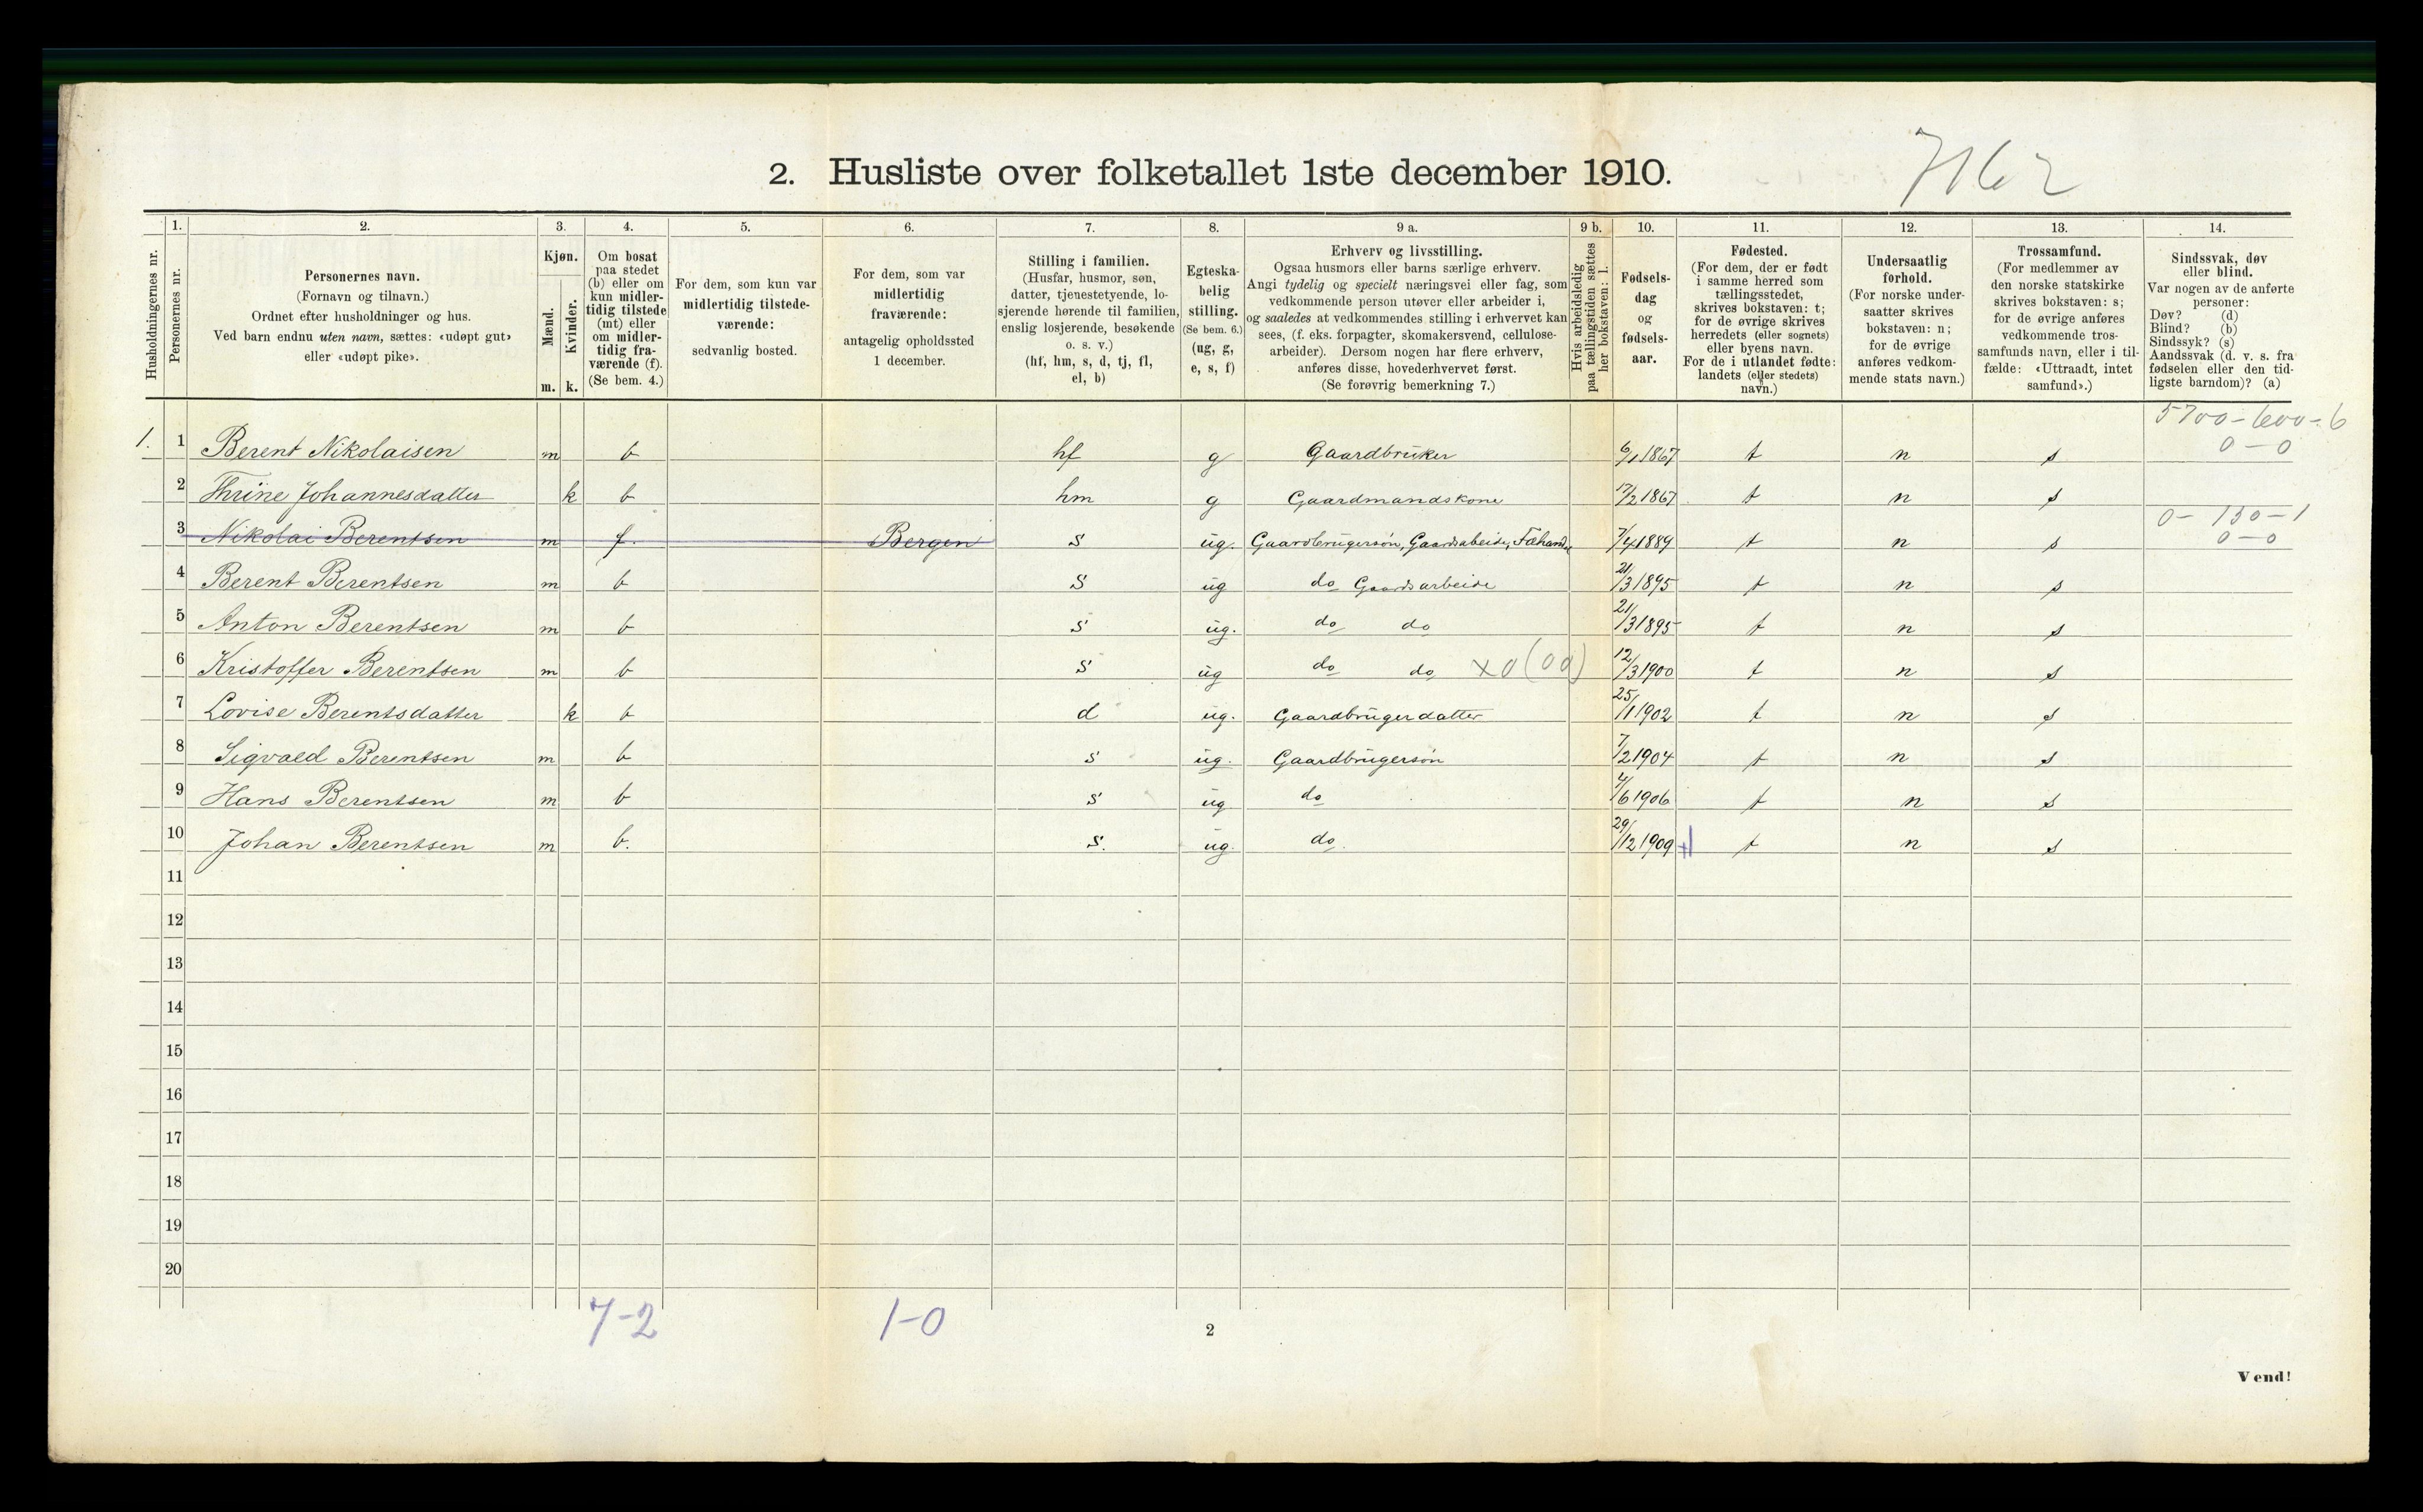 2. Husliste over folketallet 1ste december 1910.
7162
Husholdningernes nr.
1.
Personernes nr.
2.
Personernes navn.
(Fornavn og tilnavn.)
Ordnet efter husholdninger og hus.
Ved barn endnu uten navn, sættes: «udøpt gut»
eller «udøpt pike».
3.
Kjøn.
Mænd.
Kvinder.
m. k.
4.
Om bosat
paa stedet
(b) eller om
kun midler-
tidig tilstede
(mt) eller
om midler-
tidig fra-
værende (f).
(Se bem. 4.)
5.
For dem, som kun var
midlertidig tilstede-
værende:
sedvanlig bosted.
6.
For dem, som var
midlertidig
fraværende:
antagelig opholdssted
1 december.
7.
Stilling i familien.
(Husfar, husmor, søn,
datter, tjenestetyende, lo-
sjerende hørende til familien,
enslig losjerende, besøkende
o. s. v.)
(hf, hm, s, d, tj, fl,
el, b)
8.
Egteska-
belig
stilling.
(Se bem. 6.)
(ug, g,
e, s, f)
9 a.
Erhverv og livsstilling.
Ogsaa husmors eller barns særlige erhverv.
Angi tydelig og specielt næringsvei eller fag, som
vedkommende person utøver eller arbeider i,
og saaledes at vedkommendes stilling i erhvervet kan
sees, (f. eks. forpagter, skomakersvend, cellulose-
arbeider). Dersom nogen har flere erhverv,
anføres disse, hovederhvervet først.
(Se forøvrig bemerkning 7.)
9 b.
Hvis arbeidsledig
paa tællingstiden sættes
her bokstaven: l.
10.
Fødsels-
dag
og
fødsels-
aar.
11.
Fødested.
(For dem, der er født
i samme herred som
tællingsstedet,
skrives bokstaven: t;
for de øvrige skrives
herredets (eller sognets)
eller byens navn.
For de i utlandet fødte:
landets (eller stedets)
navn.)
12.
Undersaatlig
forhold.
(For norske under-
saatter skrives
bokstaven: n;
for de øvrige
anføres vedkom-
mende stats navn.)
13.
Trossamfund.
(For medlemmer av
den norske statskirke
skrives bokstaven: s;
for de øvrige anføres
vedkommende tros-
samfunds navn, eller i til-
fælde: «Uttraadt, intet
samfund».)
14.
Sindssvak, døv
eller blind.
Var nogen av de anførte
personer:
Døv? (d)
Blind? (b)
Sindssyk? (s)
Aandssvak (d. v. s. fra
fødselen eller den tid-
ligste barndom)? (a)
5700-600-6
1. 1 Berent Nikolaisen m b hf g Gaardbruker 6/1 1867 t n s 0-0
2 Thrine Johannesdatter k b hm g Gaardmandskone 17/2 1867 t n s
0-130-1
3 Nikolai Berentsen m f. Bergen s ug. Gaardbrugersøn, Gaardsabeide, 7/4 1889 t n s 0-0
4 Berent Berentsen m b s ug do Gaardsarbeide 21/3 1895 t n s
5 Anton Berentsen m b s ug. do do 21/3 1895 t n s
6 Kristoffer Berentsen m b s ug do do x0(00) 12/3 1900 t n s
7 Lovise Berentsdatter k b d ug. Gaardbrugerdatter 25/1 1902 t n s
8 Sigvald Berentsen m b s ug. Gaardbrugersøn 7/2 1904 t n s
9 Hans Berentsen m b s ug do 4/6 1906 t n s
10 Johan Berentsen m b. s. ug. do. 29/12 1909 t n s
11
12
13
14
15
16
17
18
19
20
7-2 1-0
2
Vend!